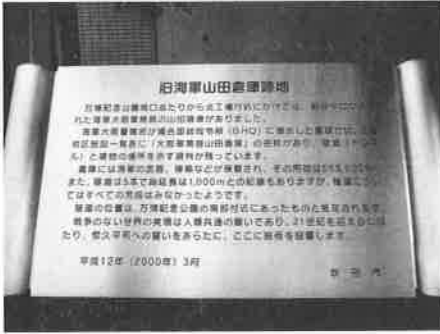 旧海軍山田倉庫跡地
万博記念公園南口あたりから
れた海軍大阪警備府の山田倉庫がありました。
海軍大阪警備府が連合国総司令部(GHQ)に提出した
施設一覧表に「大阪軍需部山田倉庫」の名称があり、
ル)と建物の場所を示す資料が残っています。
倉庫には海軍の兵器、
また、隧道は5本で総延長は1,000mとの記録もありますが、隧道
てはすべての完成はみなかったようです。
隧道の位置は、万博記念公園の南部付近にあったものと
戦争のない世界の実現は人類共通の願いであり、21世紀を迎える
たり、恒久平和への誓いをあらたに、ここに銘板を設置します。
平成12年(2000年)3月
吹田市